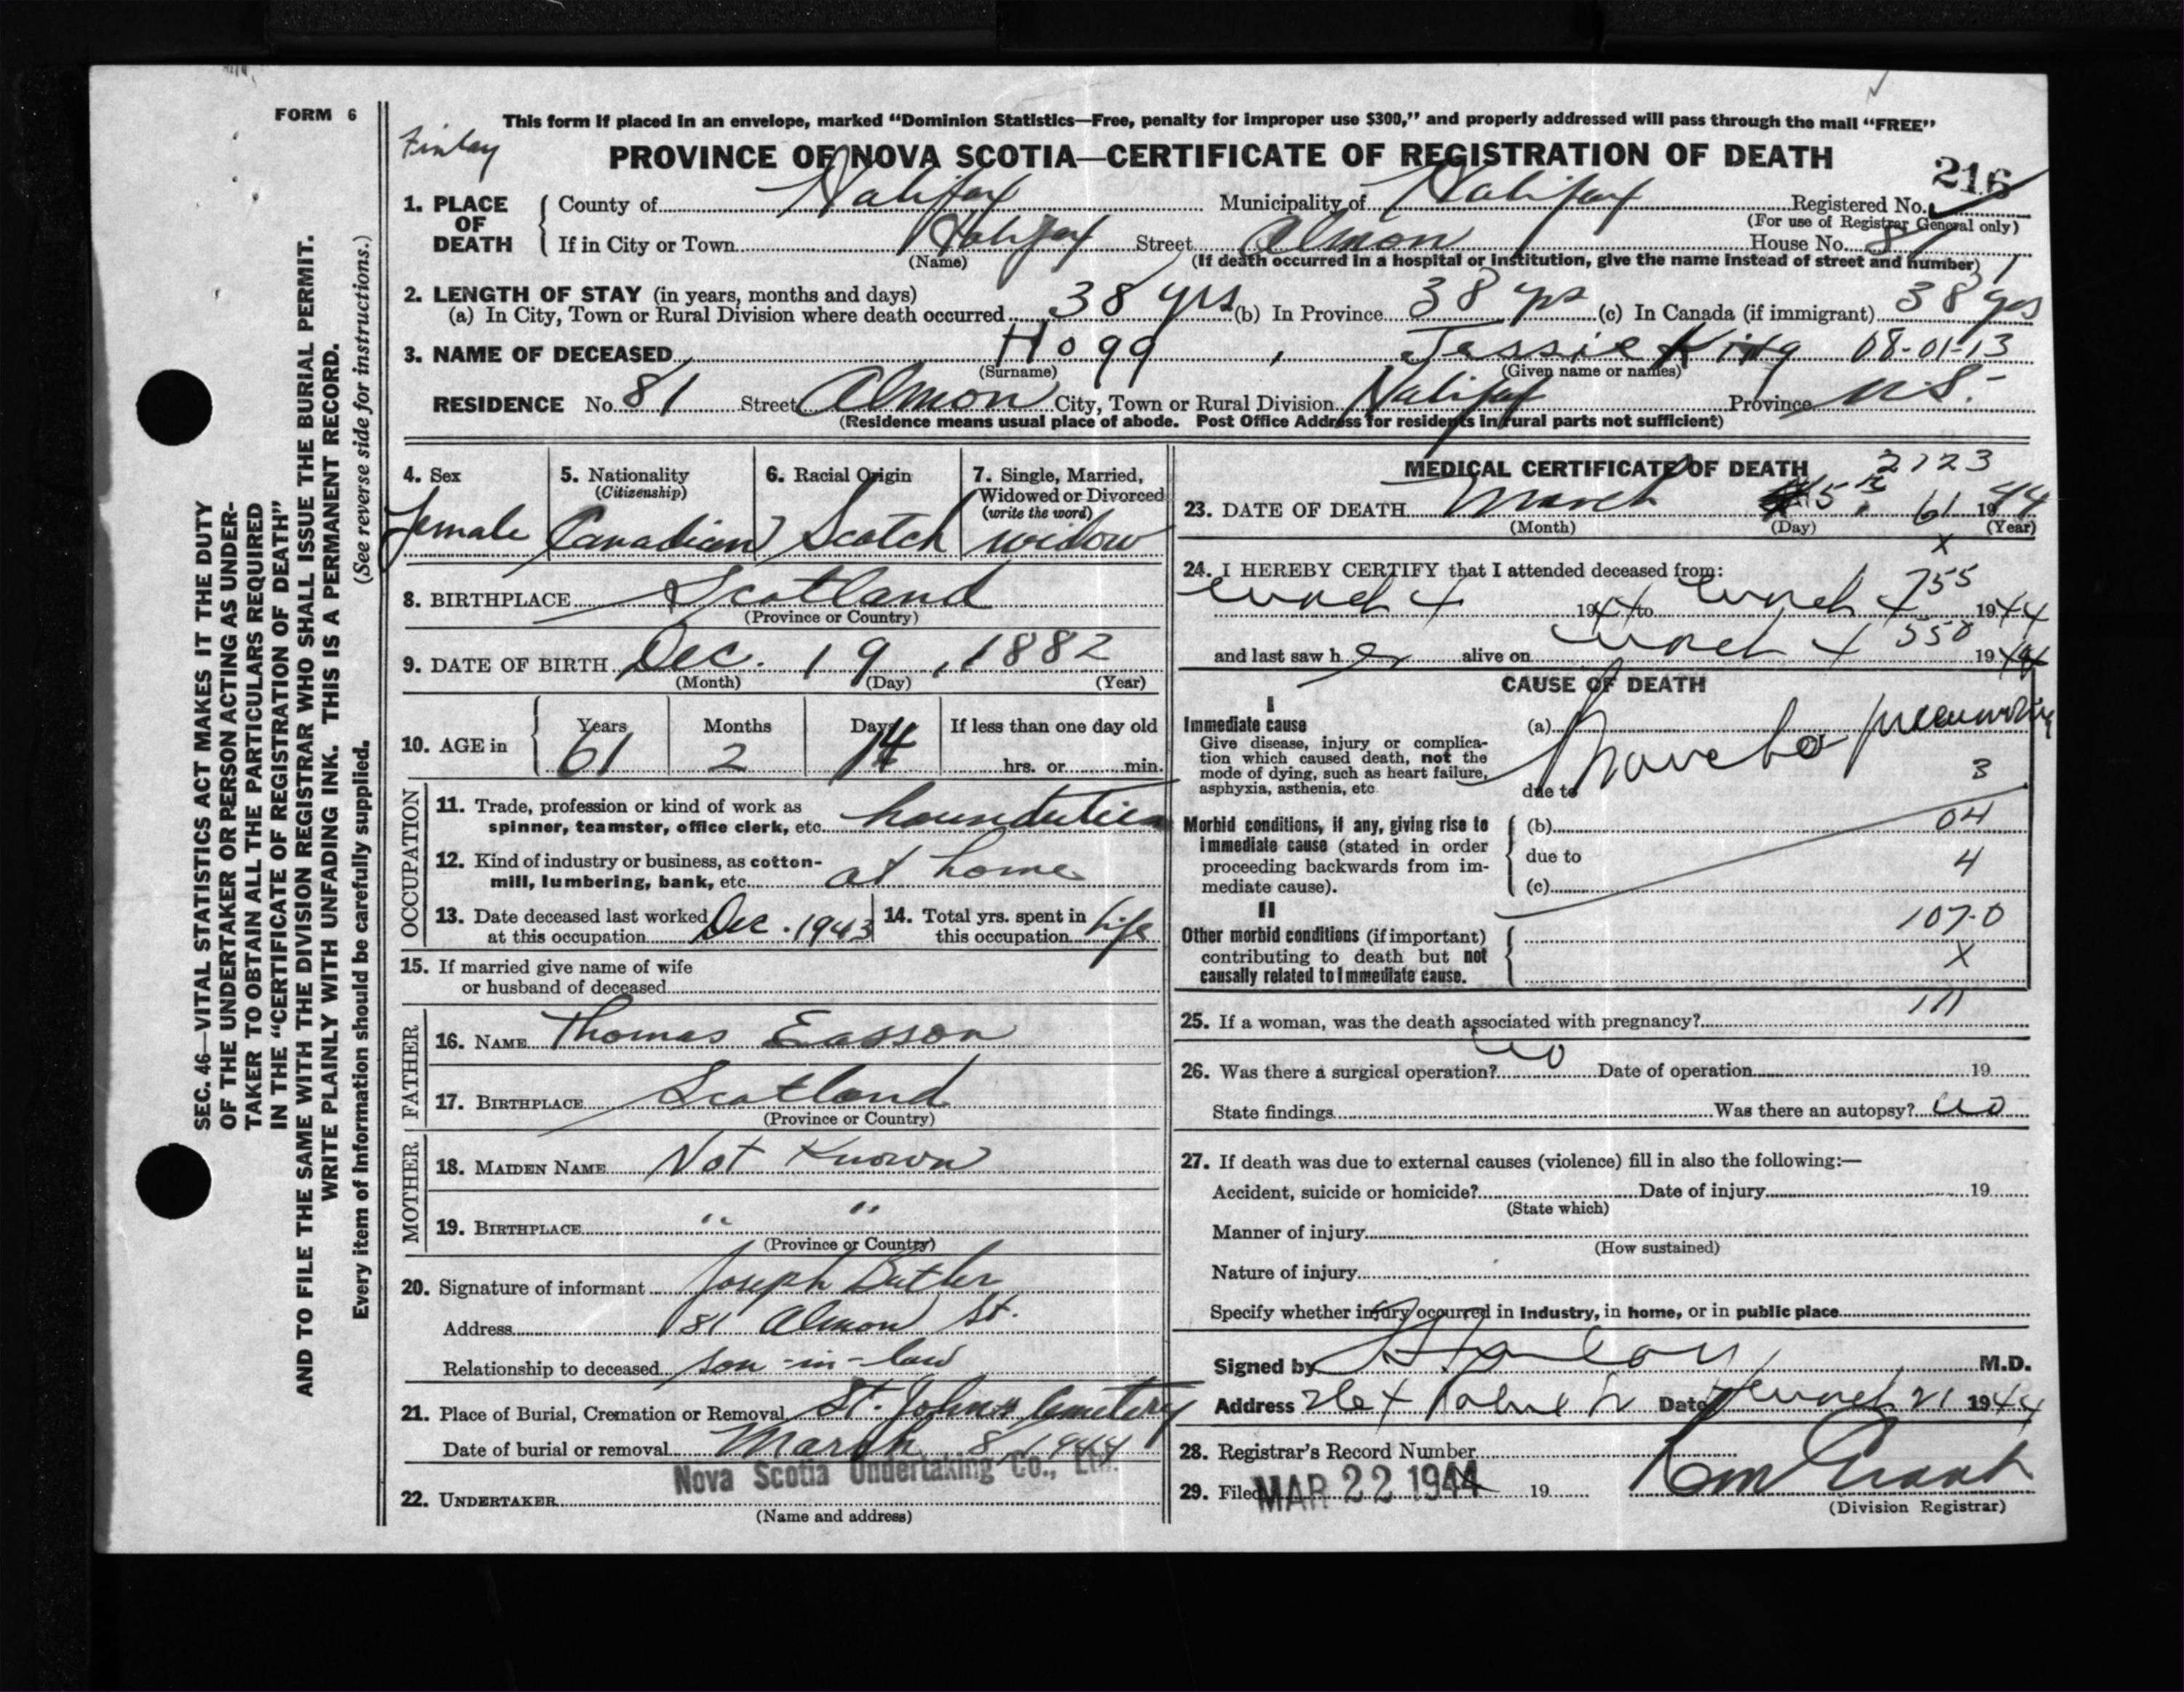 FORM 6
This form if placed in an envelope, marked "Dominion Statistics—Free, penalty for improper use $300," and properly addressed will pass through the mail "FREE"
Finlay
PROVINCE OF NOVA SCOTIA—CERTIFICATE OF REGISTRATION OF DEATH
216
1. PLACE OF DEATH
County of Halifax Municipality of Halifax Registered No.
(For use of Registrar General only)
If in City or Town Halifax Street Almon House No. 81
(Name) (If death occurred in a hospital or institution, give the name instead of street and number)
2. LENGTH OF STAY (in years, months and days)
(a) In City, Town or Rural Division where death occurred 38 yrs (b) In Province 38 yrs (c) In Canada (if immigrant) 38 yrs
3. NAME OF DECEASED Hogg, Jessie King 08-01-13
(Surname) (Given name or names)
RESIDENCE No. 81 Street Almon City, Town or Rural Division Halifax Province N.S.
(Residence means usual place of abode. Post Office Address for residents in rural parts not sufficient)
4. Sex
female
5. Nationality
(Citizenship)
Canadian
6. Racial Origin
Scotch
7. Single, Married,
Widowed or Divorced
(write the word)
widow
8. BIRTHPLACE Scotland
(Province or Country)
9. DATE OF BIRTH Dec. 19, 1882
(Month) (Day) (Year)
10. AGE in
Years Months Days If less than one day old
61 2 14 hrs. or min.
OCCUPATION
11. Trade, profession or kind of work as
spinner, teamster, office clerk, etc.
12. Kind of industry or business, as cotton-
mill, lumbering, bank, etc. at home
13. Date deceased last worked
at this occupation Dec. 1943
14. Total yrs. spent in
this occupation life
15. If married give name of wife
or husband of deceased
FATHER
16. NAME Thomas Easson
17. BIRTHPLACE Scotland
(Province or Country)
MOTHER
18. MAIDEN NAME Not Known
19. BIRTHPLACE " "
(Province or Country)
20. Signature of informant Joseph Butler
Address 81 Almon St.
Relationship to deceased son-in-law
21. Place of Burial, Cremation or Removal St. John's Cemetery
Date of burial or removal March 8, 1944
Nova Scotia Undertaking Co., Ltd.
22. UNDERTAKER
(Name and address)
MEDICAL CERTIFICATE OF DEATH 2123
23. DATE OF DEATH March 5th, 61 1944
(Month) (Day) (Year)
x
24. I HEREBY CERTIFY that I attended deceased from:
March 4 1944 to March 4 755 1944
and last saw her alive on March 4 550 1944
CAUSE OF DEATH
I
Immediate cause
Give disease, injury or complica-
tion which caused death, not the
mode of dying, such as heart failure,
asphyxia, asthenia, etc.
(a) Broncho pneumonia
3
due to
Morbid conditions, if any, giving rise to
immediate cause (stated in order
proceeding backwards from im-
mediate cause).
(b) 04
due to 4
(c)
II
Other morbid conditions (if important)
contributing to death but not
causally related to immediate cause.
107-0
X
25. If a woman, was the death associated with pregnancy?
26. Was there a surgical operation? no Date of operation 19
State findings Was there an autopsy? no
27. If death was due to external causes (violence) fill in also the following:—
Accident, suicide or homicide? Date of injury 19
(State which)
Manner of injury
(How sustained)
Nature of injury
Specify whether injury ocurred in industry, in home, or in public place
Signed by M.D.
Address Date March 21 1944
28. Registrar's Record Number
29. Filed MAR 22 1944 19
(Division Registrar)
SEC. 46—VITAL STATISTICS ACT MAKES IT THE DUTY
OF THE UNDERTAKER OR PERSON ACTING AS UNDER-
TAKER TO OBTAIN ALL THE PARTICULARS REQUIRED
IN THE "CERTIFICATE OF REGISTRATION OF DEATH"
AND TO FILE THE SAME WITH THE DIVISION REGISTRAR WHO SHALL ISSUE THE BURIAL PERMIT.
WRITE PLAINLY WITH UNFADING INK. THIS IS A PERMANENT RECORD.
Every item of information should be carefully supplied. (See reverse side for instructions.)